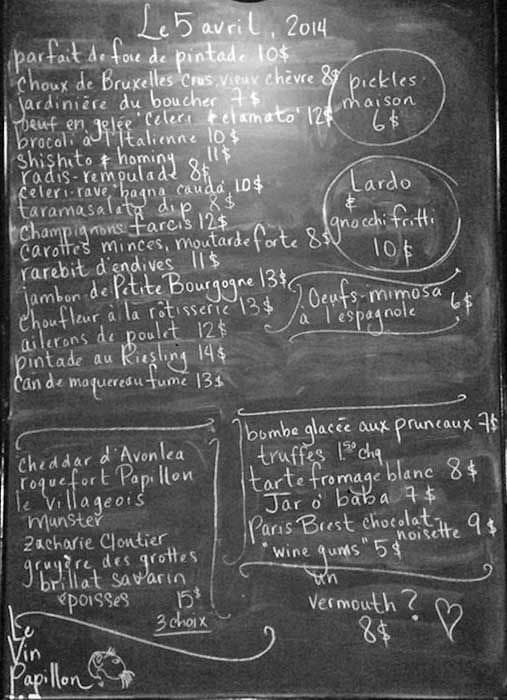 Le 5 avril, 2014
parfait de foie de pintade 10$
choux de Bruxelles crus, vieux chèvre 8$
jardinière du boucher 7$
boeuf en gelée 'celeri & clamato' 12$
brocoli à l'Italienne 10$
shishito & hominy 11$
radis-remoulade 8$
celeri-rave, bagna cauda, 10$
taramasalata dip 8$
champignons farcis 12$
carottes minces, moutarde forte 8$
rarebit d'endives 11$
jambon de Petite Bourgogne 13$
choufleur à la rôtisserie 13$
ailerons de poulet 12$
pintade au Riesling 14$
can de maquereau fumé 13$
pickles
maison
6$
Lardo
&
gnocchi fritti
10$
Oeufs-mimosa
à l'espagnole 6$
cheddar d'Avonlea
roquefort Papillon
le villageois
munster
zacharie Cloutier
gruyère des grottes
brillat savarin
époisses 15$
3 choix
bombe glacée aux pruneaux 7$
truffes 1.50 chq
tarte fromage blanc 8$
Jar o' baba 7$
Paris Brest chocolat-
noisette 9$
"wine gums" 5$
un
vermouth?
8$
Le
Vin
Papillon